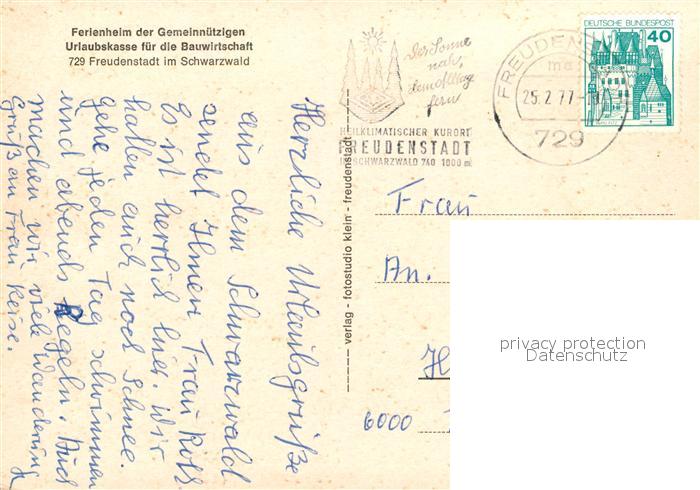 Ferienheim der Gemeinnützigen
Urlaubskasse für die Bauwirtschaft
729 Freudenstadt im Schwarzwald
Der Sonne
nah,
dem Alltag
fern
HEILKLIMATISCHER KURORT
FREUDENSTADT
SCHWARZWALD 740 1000 m
FREUDENSTADT
ma
25.2.77
729
DEUTSCHE BUNDESPOST
40
verlag - fotostudio klein - freudenstadt
Herzliche Urlaubsgrüße
aus dem Schwarzwald
sendet Ihnen Frau Roth
Es ist herrlich hier. Wir
hatten auch noch Schnee.
gehe jeden Tag schwimmen
und abends Kegeln. Auch
machen wir viele Wanderung
Gruß an Frau Reise.
Frau
An.
H
6000
privacy protection
Datenschutz